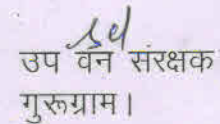 उप वन संरक्षक
गुरूग्राम।